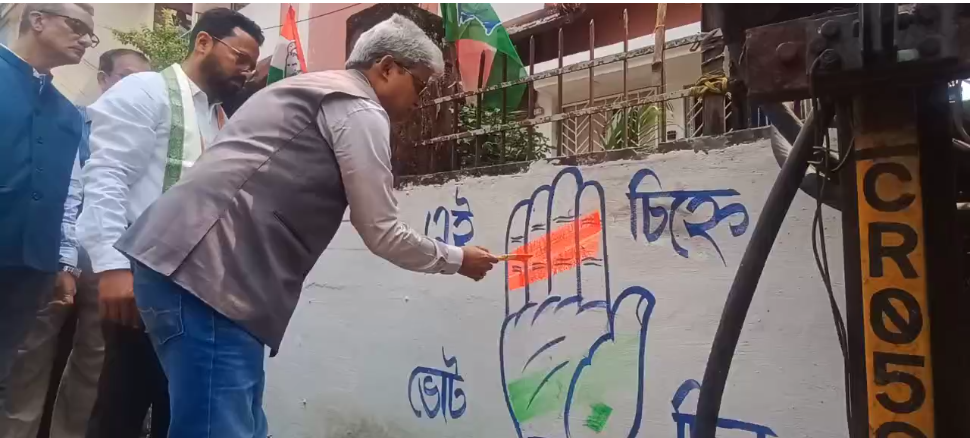 এই চিহ্নে
ভোট
CR05